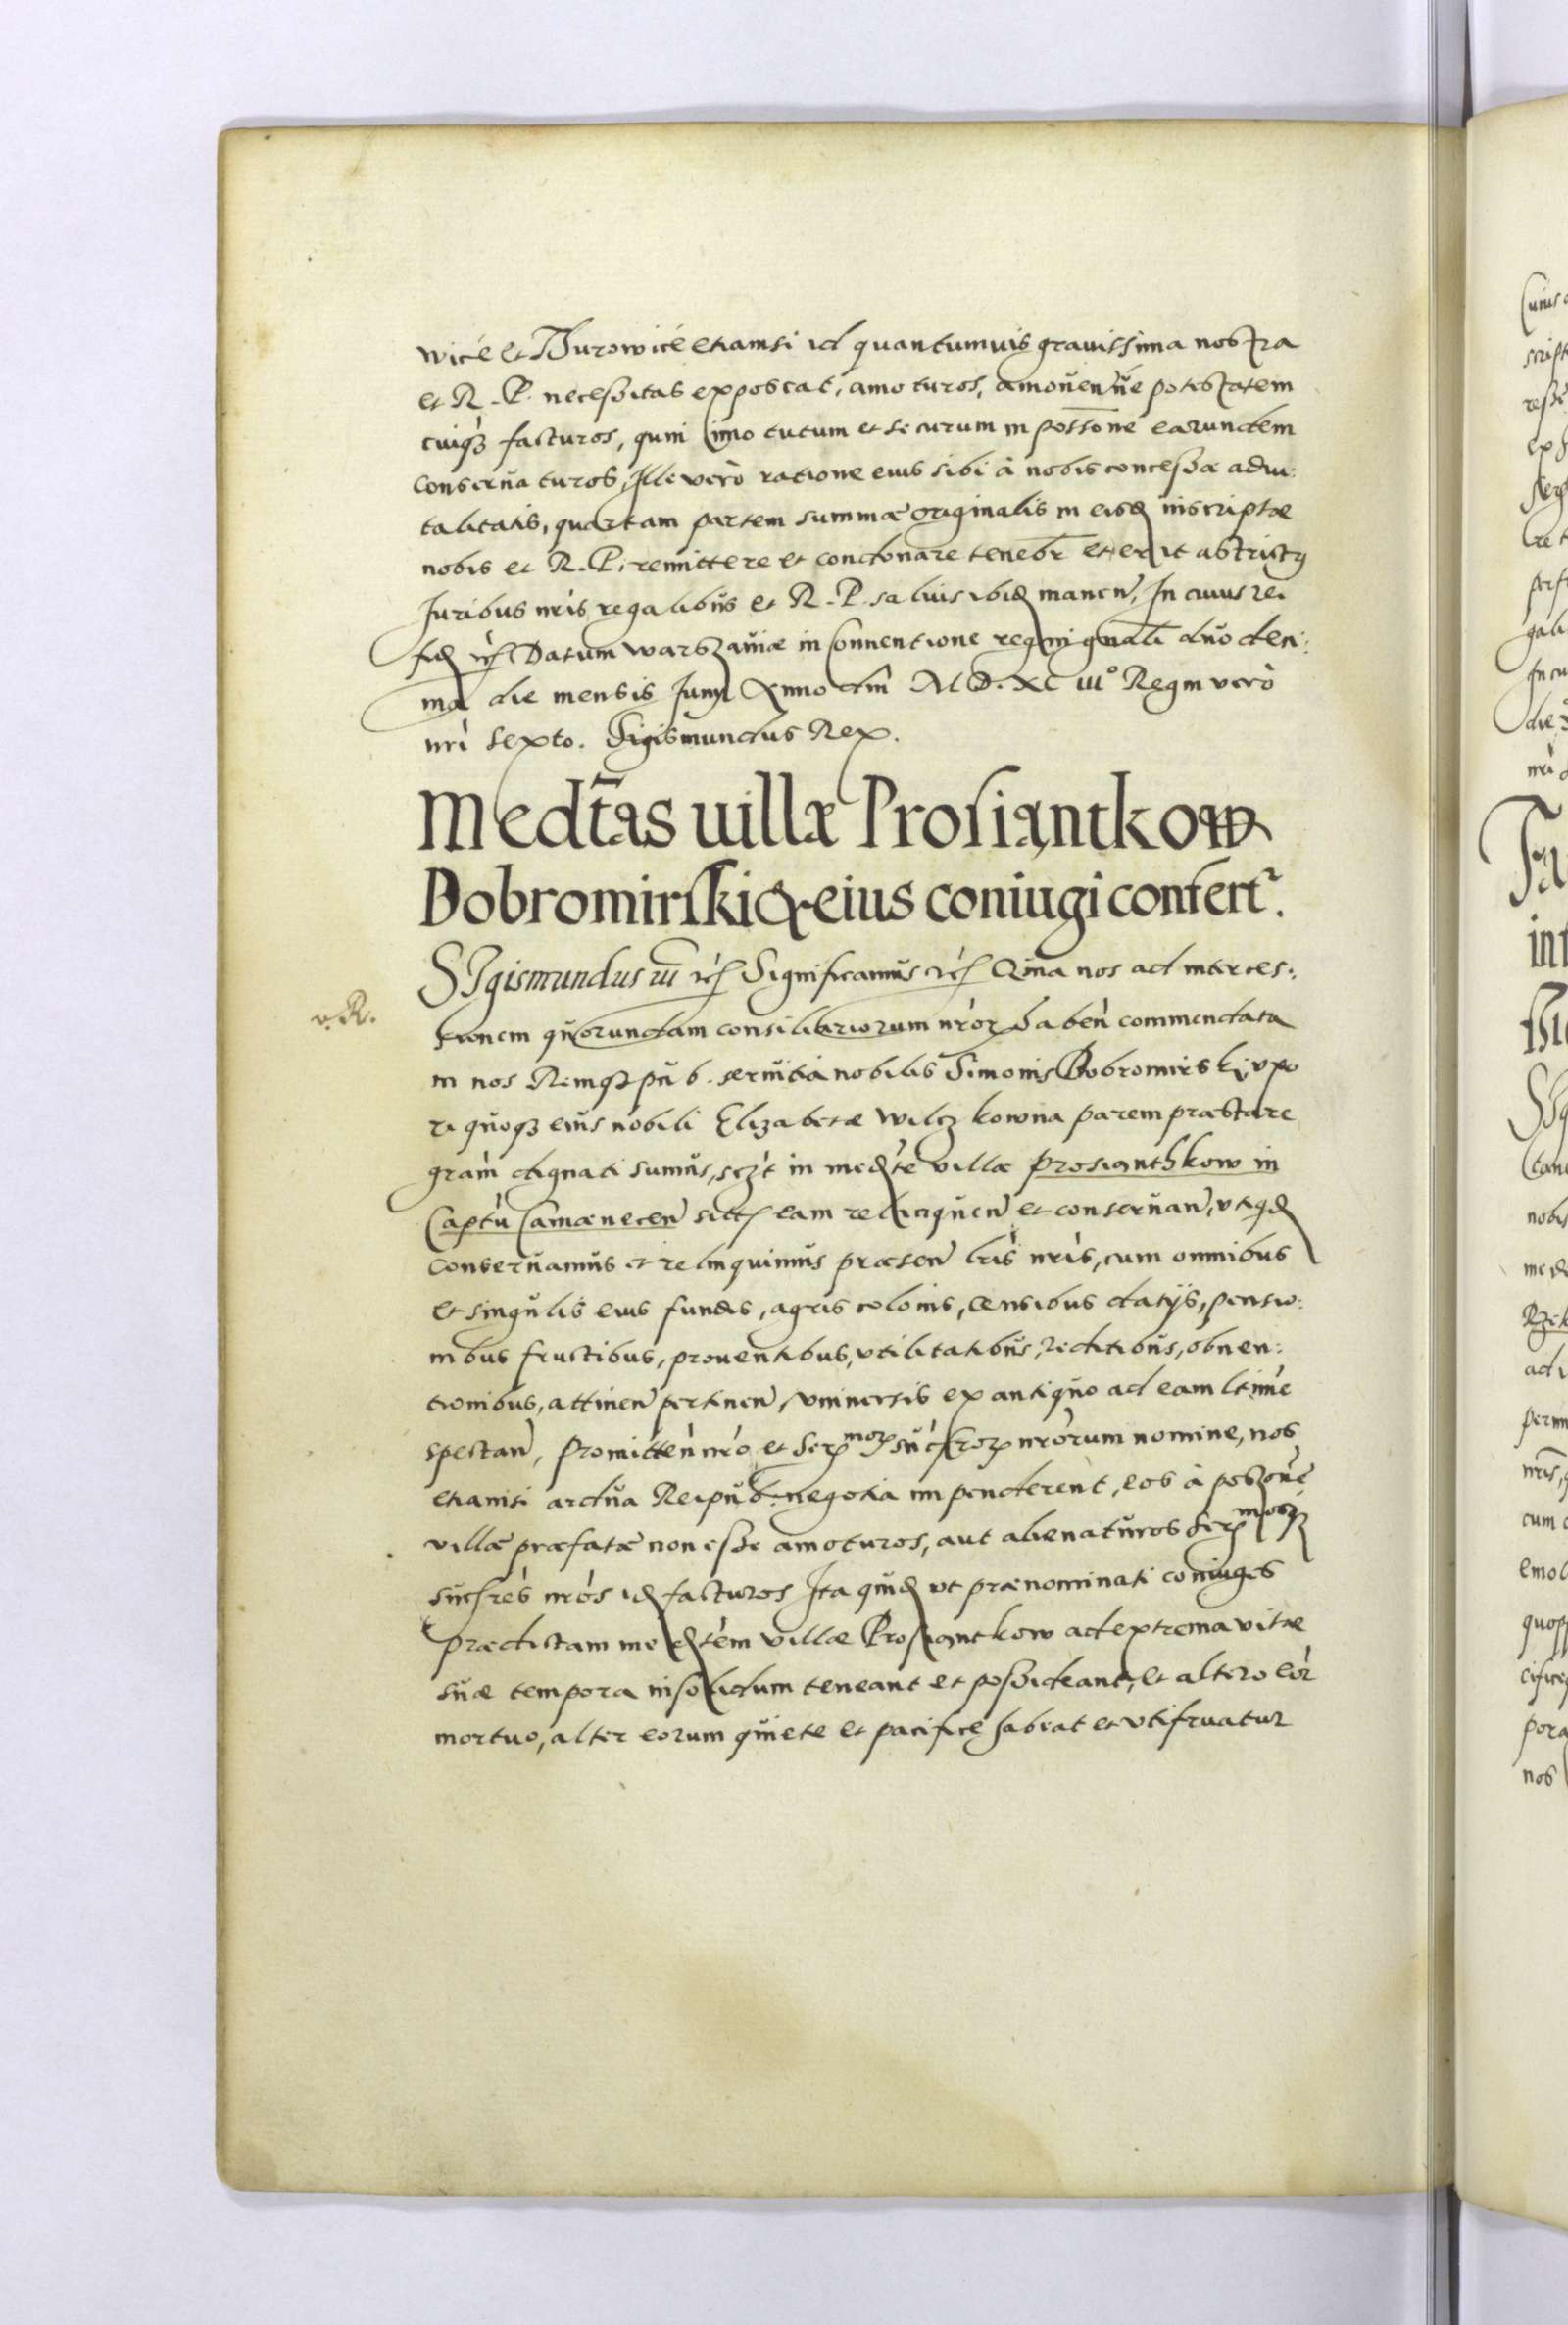 wicé et Thurowicé etiamsi id quantumuis grauissima nostra
et R. P. necessitas exposcat, amoturos, amouen̄ ue potestatem
cuiq3 facturos, quin imo tutum et securum in possone earundem
conseruaturos, Ille verò ratione eius sibi à nobis concessæ aduı:
talitatis, quartam partem summæ originalis in eisd inscriptæ
nobis et R. P. remittere et condonare teneb̄r et erit astricty
Juribus nr̄is regalibus et R. P. saluis ibid manen̄, In cuius rei
fid rć Datum Warszauiæ in Conuentione regni gnāli duodeci:
ma die mensis Junij Anno dn̄i M D. XC iiiº Regni verò
nr̄i sexto. Sigismundus Rex.
Medt̄as uillæ Prosiąntkow
Dobromirski & eius coniugi confert.
SIgismundus iii rć Significamus rć Qm̄a nos ad interces:
sionem quorundam consiliariorum nr̄or haben̄ commendata
in nos Remq3 pub. seruitia nobilis Simonis Dobromirski, vxo
ri quoq3 eius nobili Elizabetæ Wilczkowna parem præstare
grām dignati sumus, sczt in medte villæ Prosianthkow in
Captu Camænecen̄ sitt eam relinquen̄ et conseruan̄, vtiqd
conseruamus et relinquimus præsen̄ lr̄is nr̄is, cum omnibus
et singulis eius fundis, agris colonis, censibus datijs, pensio:
nibus fructibus, prouentibus, vtilitatibus, reditibus, obuen:
tionibus, attinen̄ pertinen̄, vniuersis ex antiquo ad eam ltime
spectan̄, Promitten̄ nr̄o et Ser mor sucsror nr̄orum nomine, nos
etiamsi ardua Reipub. negotia impenderent, eos à possone
villæ præfatæ non esse amoturos, aut alienaturos Ser mosq3
sucsres nr̄os id facturos Ita quid vt prænominati coniuges
prædictam medtem villæ Prosiantkow ad extrema vitæ
suæ tempora insolidum teneant et possideant, et altero eor
mortuo, alter eorum quiete et pacifice habeat et vtifruatur